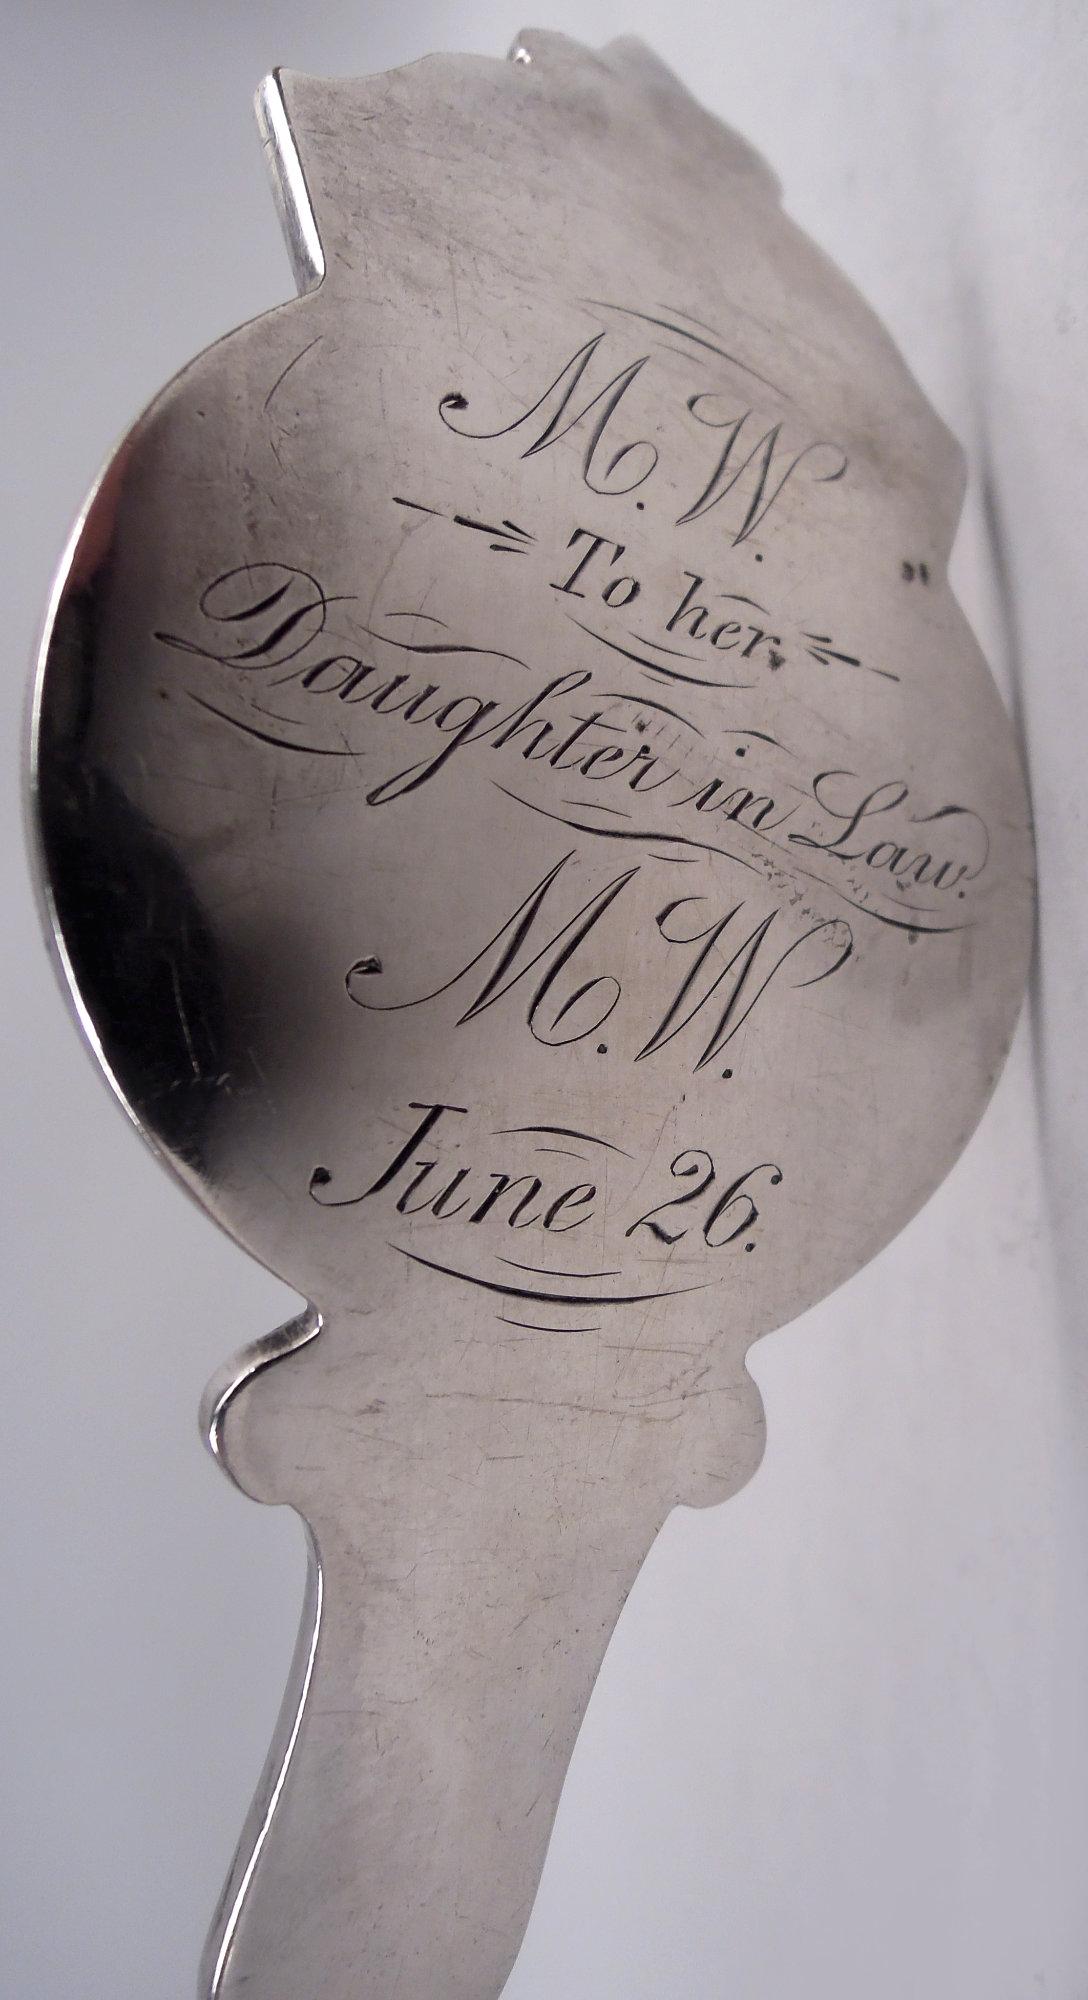 M. W.
To her
Daughter in Law.
M. W.
June 26.